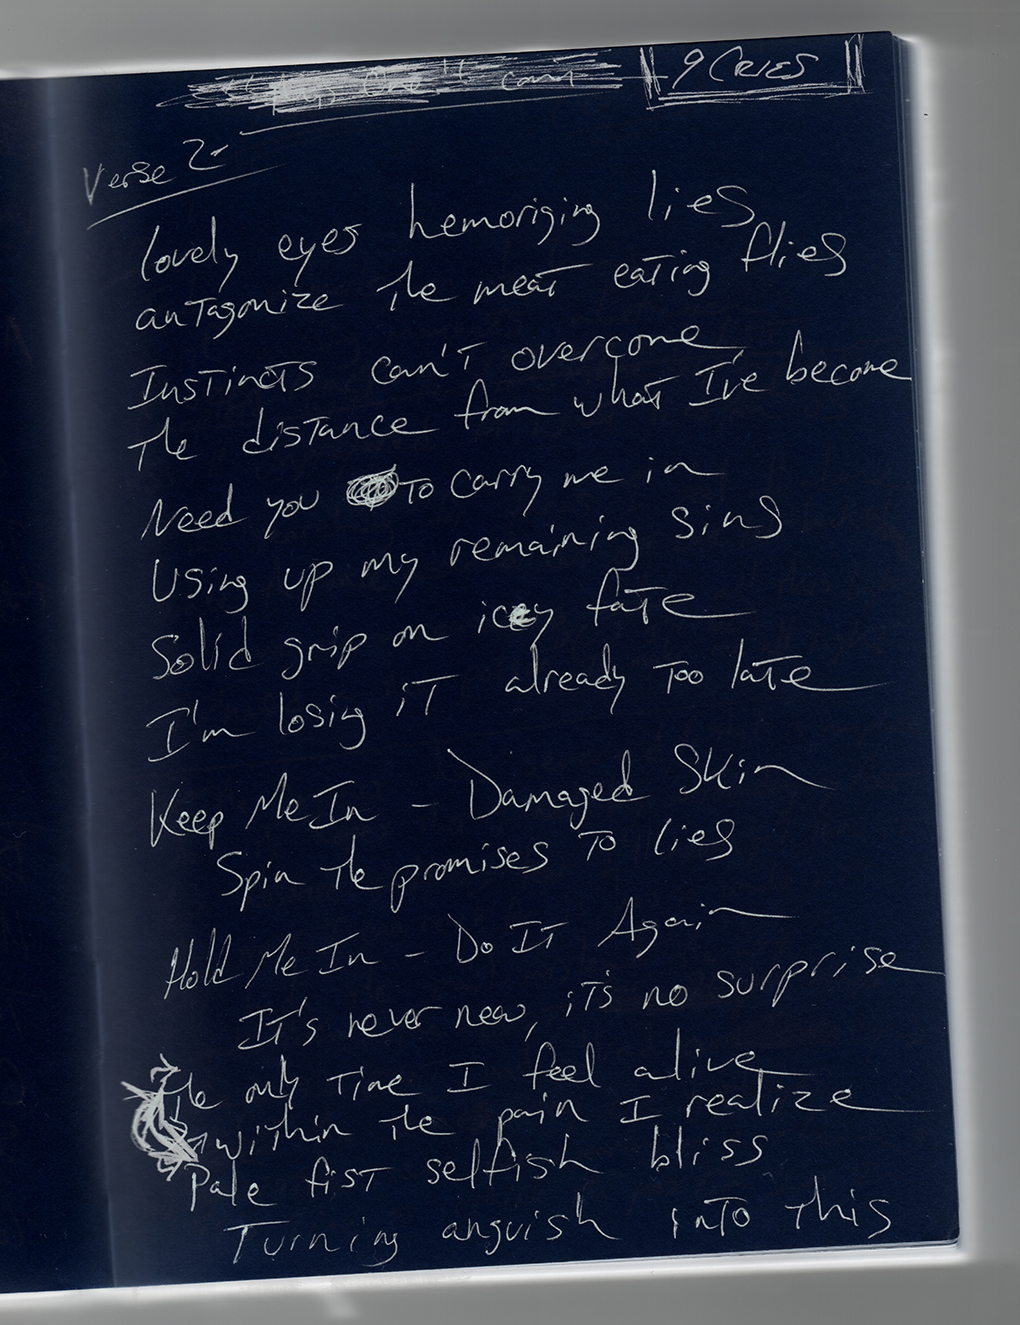 9 Cries
Verse 2-
lovely eyes hemoriging lies
antagonize the meat eating flies
Instincts can't overcome
The distance from what I've become
Need you to carry me in
Using up my remaining sins
Solid grip on icy fate
I'm losing it already too late
Keep Me In - Damaged Skin
Spin the promises to lies
Hold Me In - Do It Again
It's never new, it's no surprise
The only time I feel alive
within the pain I realize
Pale fist selfish bliss
Turning anguish into this